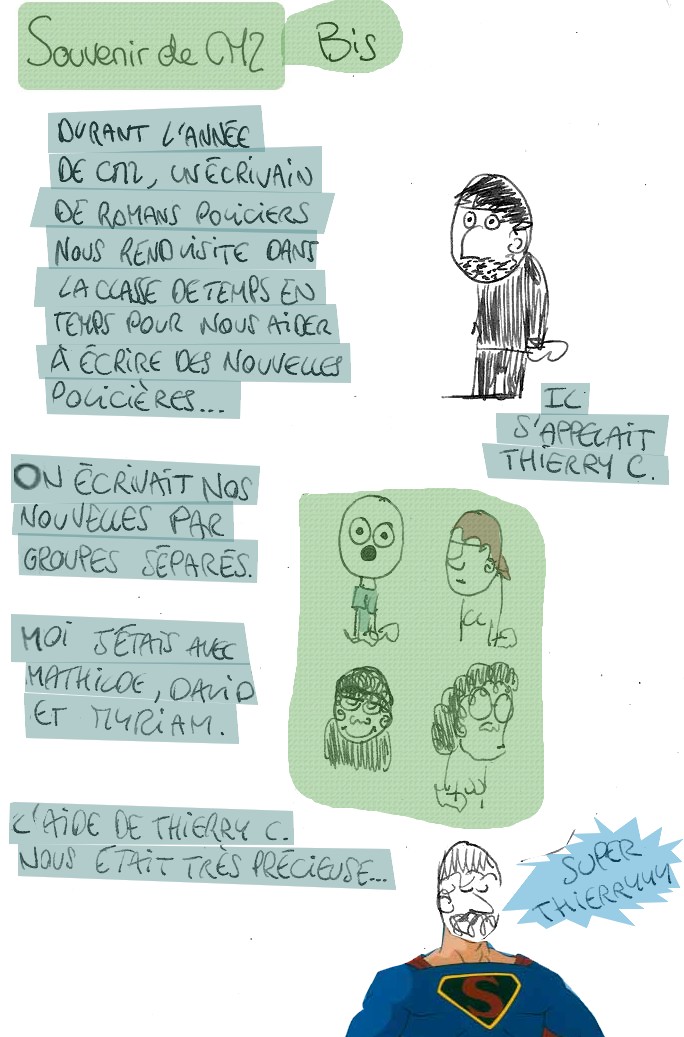 Souvenir de CM2 Bis
DURANT L'ANNÉE
DE CM2, UN ÉCRIVAIN
DE ROMANS POLICIERS
NOUS REND VISITE DANS
LA CLASSE DE TEMPS EN
TEMPS POUR NOUS AIDER
À ÉCRIRE DES NOUVELLES
POLICIÈRES...
IL
S'APPELAIT
THIERRY C.
ON ÉCRIVAIT NOS
NOUVELLES PAR
GROUPES SÉPARÉS.
MOI J'ÉTAIS AVEC
MATHILDE, DAVID
ET MYRIAM.
L'AIDE DE THIERRY C.
NOUS ÉTAIT TRÈS PRÉCIEUSE...
SUPER
THIERRYYY
S